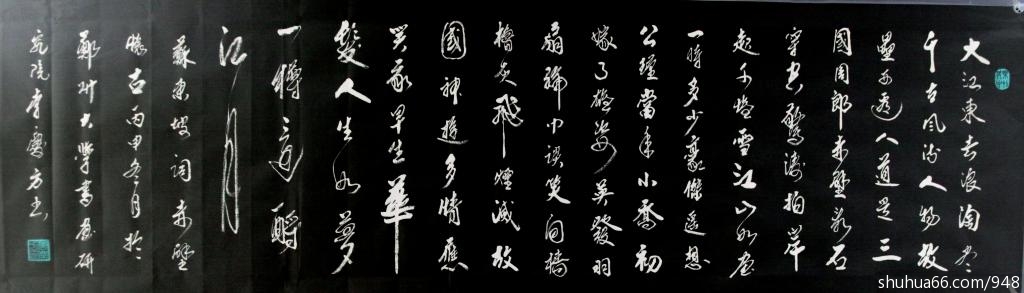 大江東去浪淘盡
千古風流人物故
壘西邊人道是三
國周郎赤壁亂石
穿空驚濤拍岸
起千堆雪江山如畫
一時多少豪傑遙想
公瑾當年小喬初
嫁了雄姿英發羽
扇綸巾談笑間檣
櫓灰飛煙滅故
國神遊多情應
笑我早生華
髮人生如夢
一樽還酹
江月
蘇東坡詞赤壁
懷古丙申冬月於
鄭州大學書畫研
究院李慶方書
shuhua66.com/948